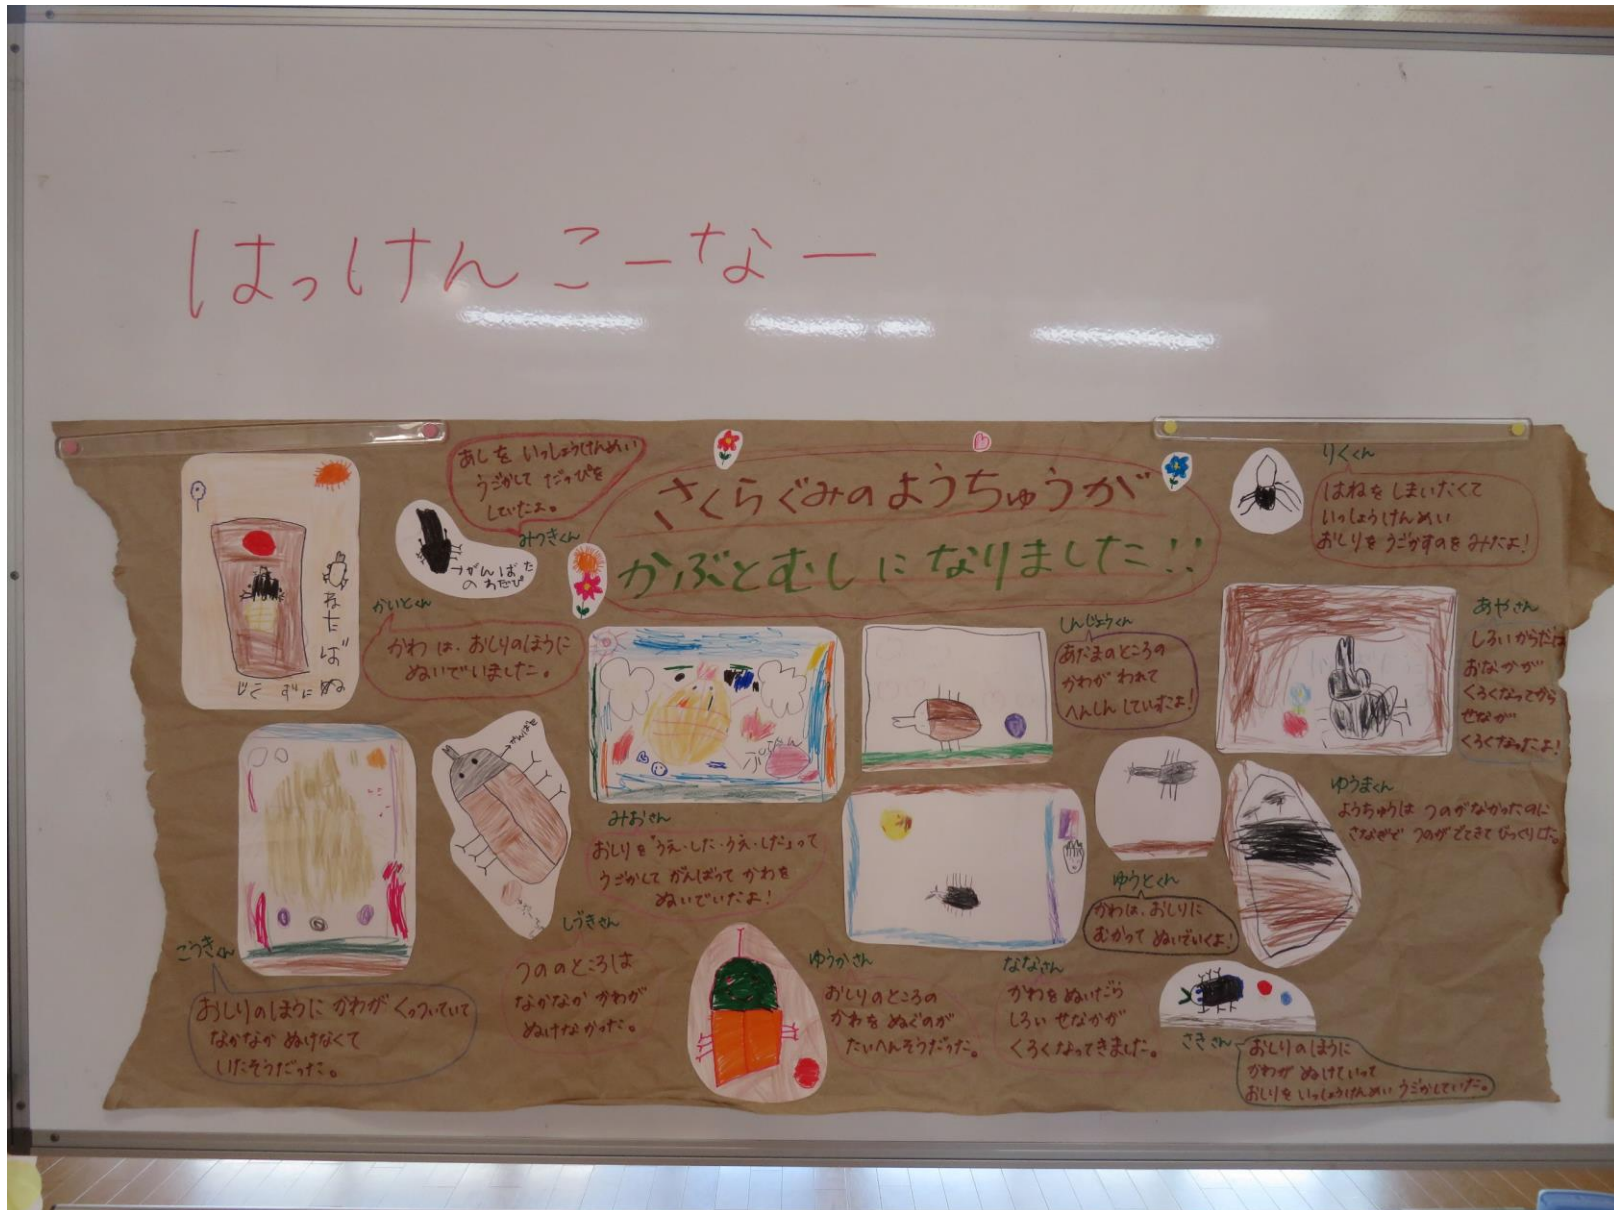 はっけんこーなー
さくらぐみのようちゅうが
かぶとむしになりました!!
あしを いっしょうけんめい
うごかして だっぴを
していたよ。
みつきくん
がんばった
かいとくん
かわは、おしりのほうに
ぬいでいました。
りくくん
はねを しまいたくて
いっしょうけんめい
おしりを うごかすのを みたよ!
しんじょうくん
あたまのところの
かわが われて
へんしん していたよ!
あやさん
しろい からだは
おなかが
くろくなってから
せなが
くろくなったよ!
みおさん
おしりを「うえ・した・うえ・した」って
うごかして がんばって かわを
ぬいでいたよ!
ゆうまくん
ようちゅうは つのが なかったのに
さなぎで つのが でてきて びっくりした。
ゆうとくん
かわは、おしりに
むかって ぬいでいくよ!
おしりのほうに かわが くっついていて
なかなか ぬけなくて
つののところは
なかなか かわが
ぬけなかった。
ゆうかさん
おしりのところの
かわを ぬぐのが
たいへんそうだった。
ななさん
かわを ぬいだら
しろい せなかが
くろくなってきました。
さきさん
おしりのほうに
かわが ぬけていって
おしりを いっしょうけんめい うごかしていた。